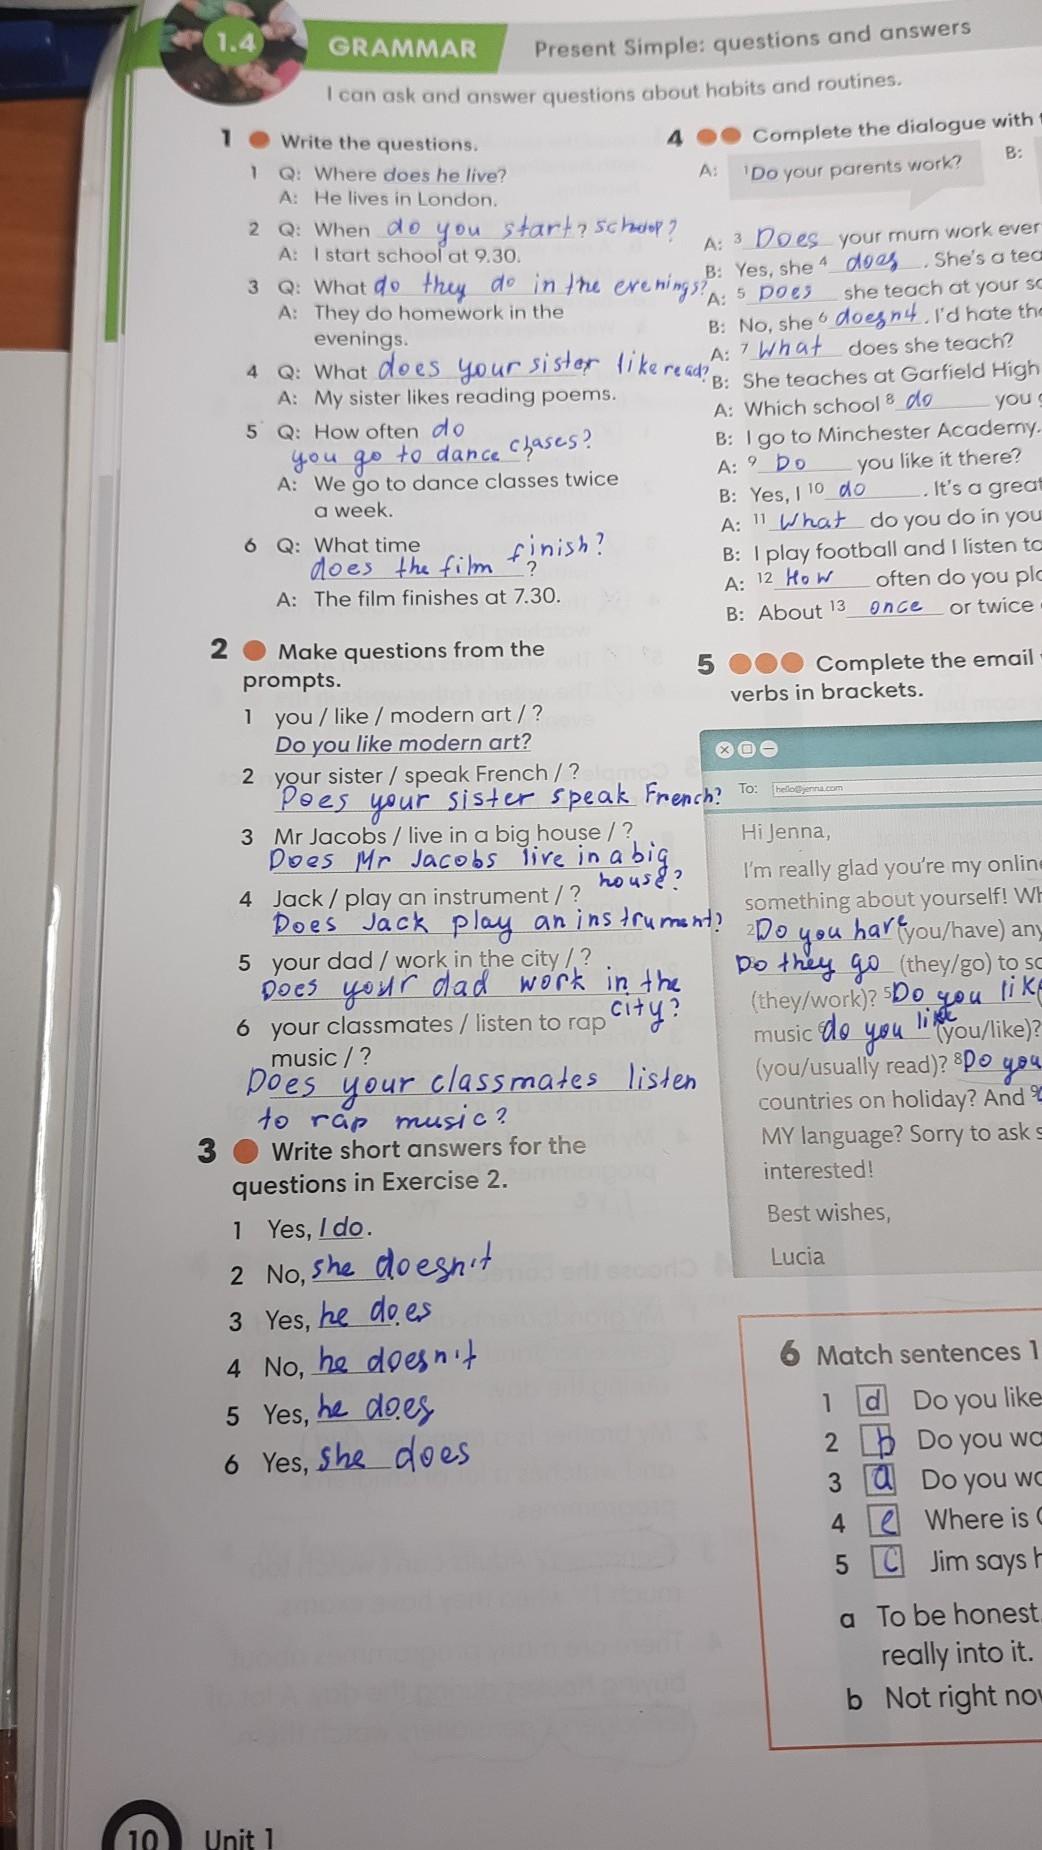 1.4 GRAMMAR Present Simple: questions and answers
I can ask and answer questions about habits and routines.
1 Write the questions.
1 Q: Where does he live?
A: He lives in London.
2 Q: When do you start? school?
A: I start school at 9.30.
3 Q: What do they do in the evenings?
A: They do homework in the
evenings.
4 Q: What does your sister like read?
A: My sister likes reading poems.
5 Q: How often do
you go to dance clases?
?
A: We go to dance classes twice
a week.
6 Q: What time
does the film finish?
?
A: The film finishes at 7.30.
2 Make questions from the
prompts.
1 you / like / modern art / ?
Do you like modern art?
2 your sister / speak French / ?
Does your sister speak French?
3 Mr Jacobs / live in a big house / ?
Does Mr Jacobs live in a big
house?
4 Jack / play an instrument / ?
Does Jack play an instrument?
5 your dad / work in the city / ?
Does your dad work in the
city?
6 your classmates / listen to rap
music / ?
Does your classmates listen
to rap music?
3 Write short answers for the
questions in Exercise 2.
1 Yes, I do.
2 No, she doesn't
3 Yes, he does
4 No, he doesn't
5 Yes, he does
6 Yes, she does
4 Complete the dialogue with
A: 1 Do your parents work?
B:
A: 3 Does your mum work ever
B: Yes, she 4 does. She's a tea
A: 5 Does she teach at your sc
B: No, she 6 doesn4. I'd hate the
A: 7 What does she teach?
B: She teaches at Garfield High
A: Which school 8 do you g
B: I go to Minchester Academy.
A: 9 Do you like it there?
B: Yes, I 10 do. It's a great
A: 11 What do you do in you
B: I play football and I listen to
A: 12 How often do you pla
B: About 13 once or twice
5 Complete the email
verbs in brackets.
To: hello@jenna.com
Hi Jenna,
I'm really glad you're my online
something about yourself! Wh
2 Do you have (you/have) any
Do they go (they/go) to sc
(they/work)? 5 Do you like
music 6 do you like (you/like)?
(you/usually read)? 8 Do you
countries on holiday? And 9
MY language? Sorry to ask s
interested!
Best wishes,
Lucia
6 Match sentences 1
1 d Do you like
2 b Do you wo
3 a Do you wo
4 e Where is
5 c Jim says h
a To be honest,
really into it.
b Not right now
10 Unit 1